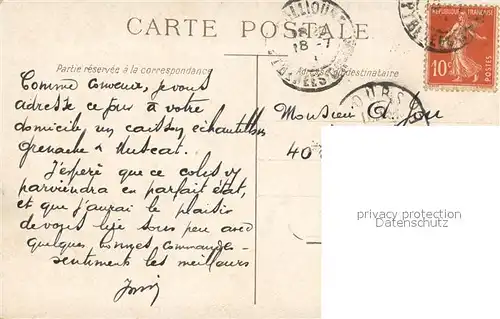 CARTE POSTALE
REPUBLIQUE FRANÇAISE
10c
18 -7
Partie réservée à la correspondance
Adresse du destinataire
TOURS
Comme convenu, je vous
adresse ce jour à votre
domicile, un caisson échantillons
Grenache & Muscat.
J'espère que ce colis vs
parviendra en parfait état,
et que j'aurai le plaisir
de vous lire sous peu avec
quelques commandes
sentiments les meilleurs
Monsieur G.
40
privacy protection
Datenschutz